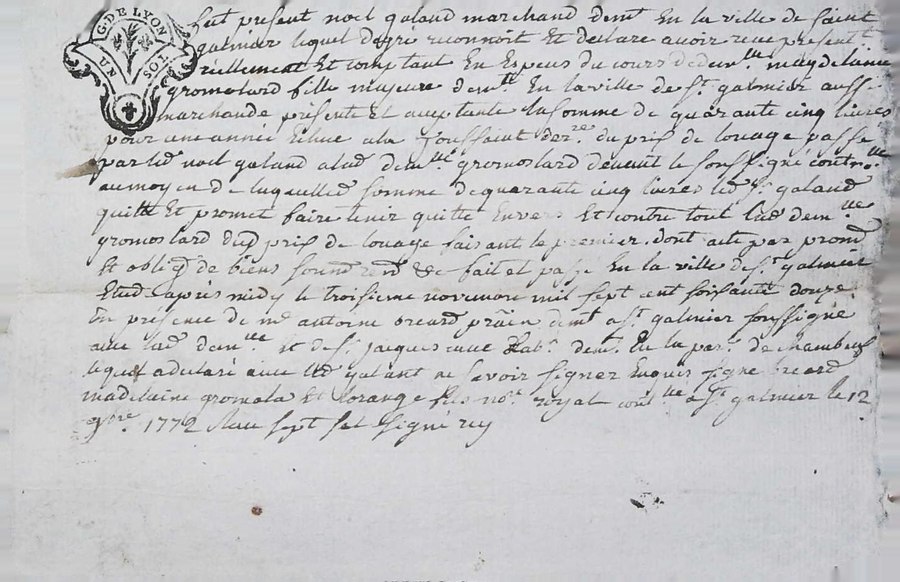 G. DE LYON
UN SOL
fut présent noel galand marchand demt En la ville de saint
galmier lequel degré reconnoit Et declare avoir receu presentt
réellement Et comptant En Especes du cours de demlle magdelaine
gromolard fille majeure demte En la ville de St galmier aussi
marchande présente et aceptante la somme de quarante cinq livres
pour une année Echue a la Toussaint derre du prix de louage passé
par led noel galand a lad demlle gromoslard devant le soussigné contr
au moyen de laquelled somme de quarante cinq livres led Sr galand
quitte Et promet faire tenir quitte Envers Et contre tout lad demlle
gromoslard dud prix de louage faisant le premier. dont acte par prom
Et obligd de biens soumd rend &c fait et passé En la ville de St galmier
Etude après midy le troisieme novembre mil sept cent soixante douze
En presence de me antoine breard demt a St galmier soussigné
avec lad demlle et de Sr jacques habt demt En la par. de chambeuf
lequel a declaré avec led galant ne savoir signer Enquis signé breard
madelaine gromola Et lorange fils nore royal contlle a St galmier le 12
9bre. 1772 Reçu sept s signé rey